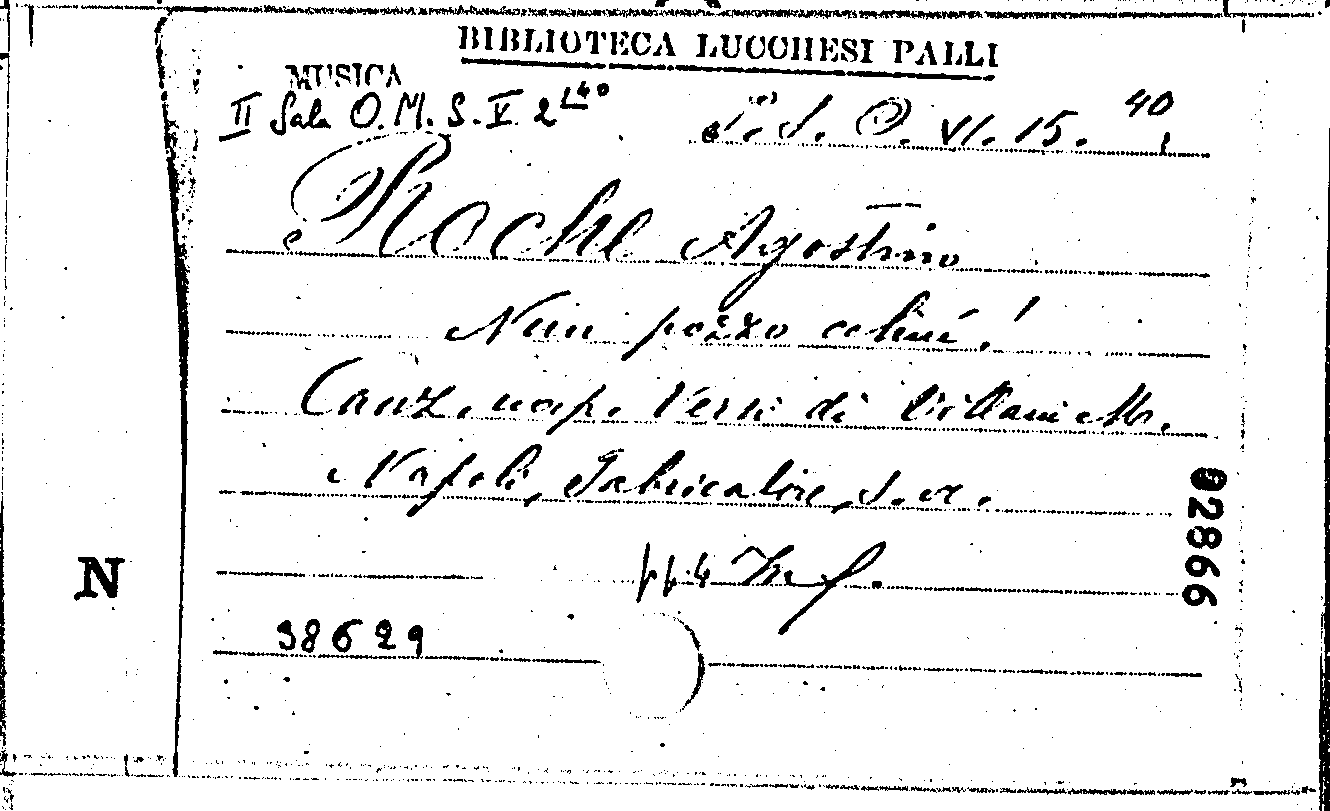 BIBLIOTECA LUCCHESI PALLI
MUSICA
II Sala O.M.S.V. 2 140
S. S. O. VI. 15. 40
Roche Agostino
Nun pozzo
Canz. nap. Versi di Villani M.
Napoli, Fabricatore, s. a.
pp 4 in f.
38629
02866
N